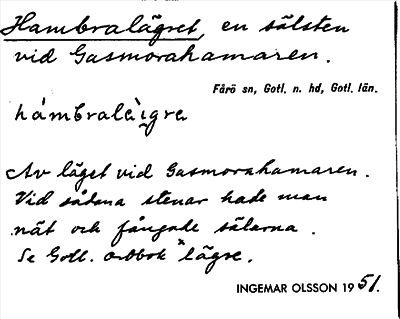 Hambralägret, en sälsten
vid Gasmorahamaren.
Fårö sn, Gotl. n. hd, Gotl. län.
hámbralèi̯gra
Av läget vid Gasmorahamaren.
Vid sådana stenar hade man
nät och fångade sälarna.
Se Gotl. ordbok "lägre.
INGEMAR OLSSON 1951.